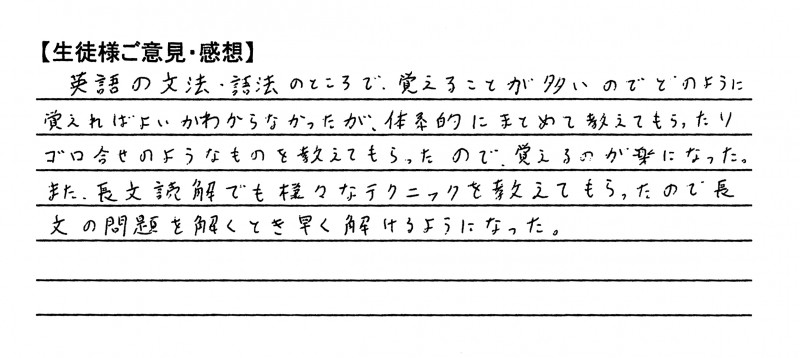 【生徒様ご意見・感想】
英語の文法・語法のところで、覚えることが多いのでどのように
覚えればよいかわからなかったが、体系的にまとめて教えてもらったり
ゴロ合せのようなものを教えてもらったので、覚えるのが楽になった。
また、長文読解でも様々なテクニックを教えてもらったので長
文の問題を解くとき早く解けるようになった。